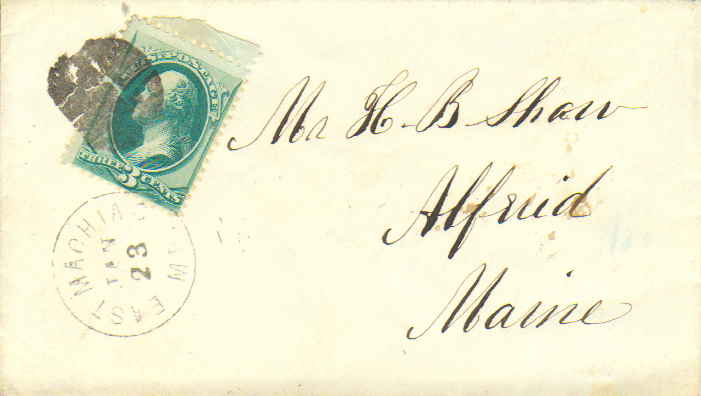 POSTAGE
THREE 3 CENTS
EAST MACHIAS
JAN
23
Mr H. B. Shaw
Alfred
Maine